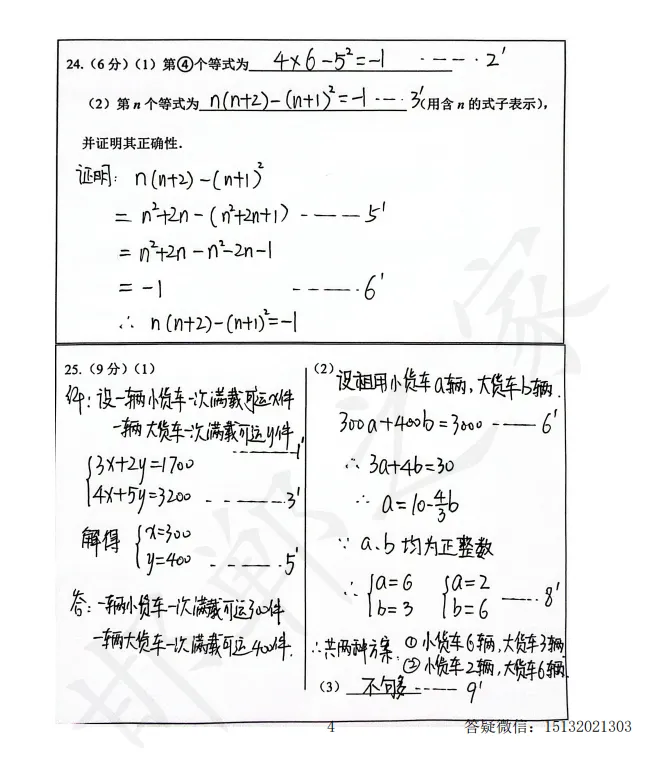 24.（6分）（1）第④个等式为 4×6-5²=-1 ---- 2'
（2）第 n 个等式为 n(n+2)-(n+1)²=-1 --- 3'（用含 n 的式子表示），
并证明其正确性.
证明: n(n+2)-(n+1)²
= n²+2n-(n²+2n+1) ------ 5'
= n²+2n-n²-2n-1
= -1 ------ 6'
∴ n(n+2)-(n+1)²=-1
25.（9分）（1）
解: 设一辆小货车一次满载可运x件
一辆大货车一次满载可运y件
------ 1'
{3x+2y=1700
4x+5y=3200 ------ 3'
解得 {x=300
y=400 ------ 5'
答: 一辆小货车一次满载可运300件
一辆大货车一次满载可运400件.
（2）设租用小货车a辆, 大货车b辆.
300a+400b=3000 ----- 6'
∴ 3a+4b=30
∴ a=10-4/3b
∵ a、b 均为正整数
∴ {a=6 {a=2
b=3 b=6 ---- 8'
∴共两种方案: ① 小货车6辆, 大货车3辆
② 小货车2辆, 大货车6辆.
（3） 不够多 ----- 9'
4
答疑微信：15132021303